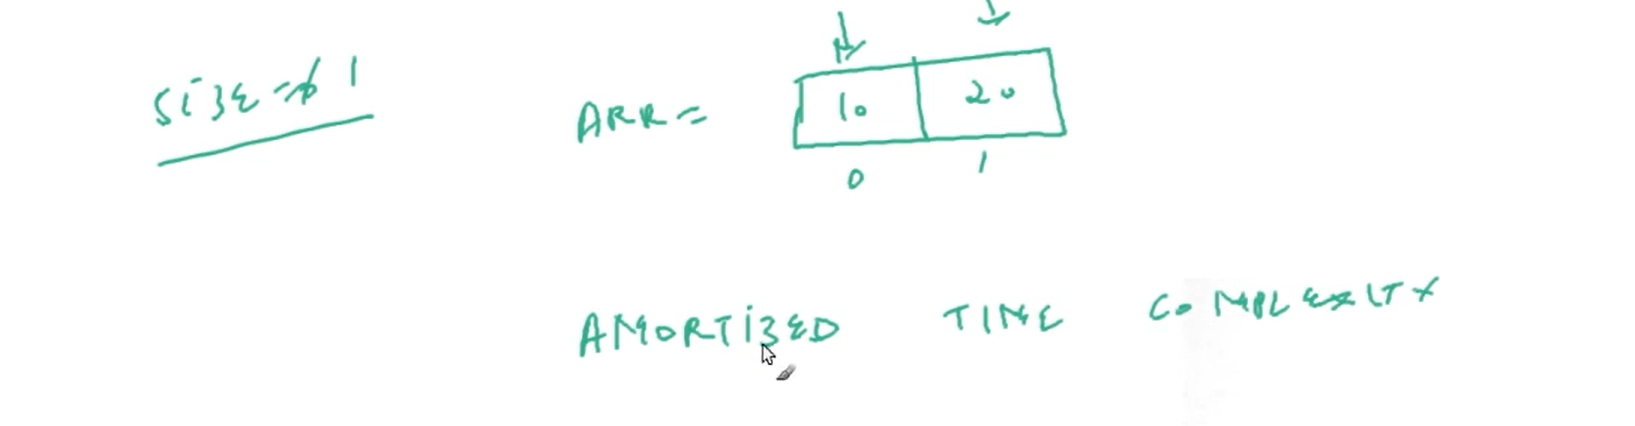 SIZE = 1
ARR = 10 20
0 1
AMORTIZED TIME COMPLEXITY